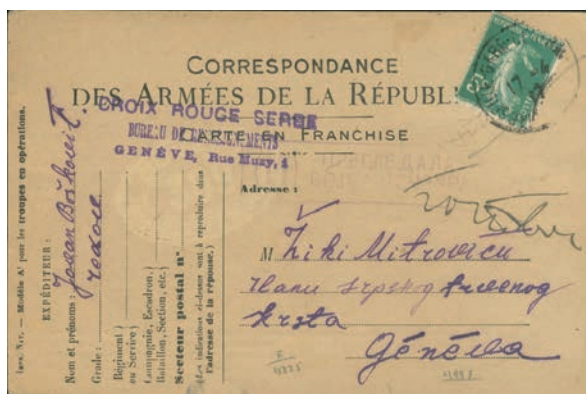 CORRESPONDANCE
DES ARMÉES DE LA RÉPUBL
CARTE EN FRANCHISE
CROIX ROUGE SERBE
BUREAU DE RENSEIGNEMENTS
GENÈVE, Rue Muzy, 4
Adresse :
M Žiki Mitroviću
članu srpskog
krsta
Génèva
Imp. Nat. — Modèle A¹ pour les troupes en opérations.
EXPÉDITEUR :
Nom et prénoms : Jovan Bošković
Grade :
Régiment
ou Service)
Compagnie, Escadron,
Bataillon, Section, etc.)
Secteur postal n°
(Les indications ci-dessus sont à reproduire dans
l'adresse de la réponse.)